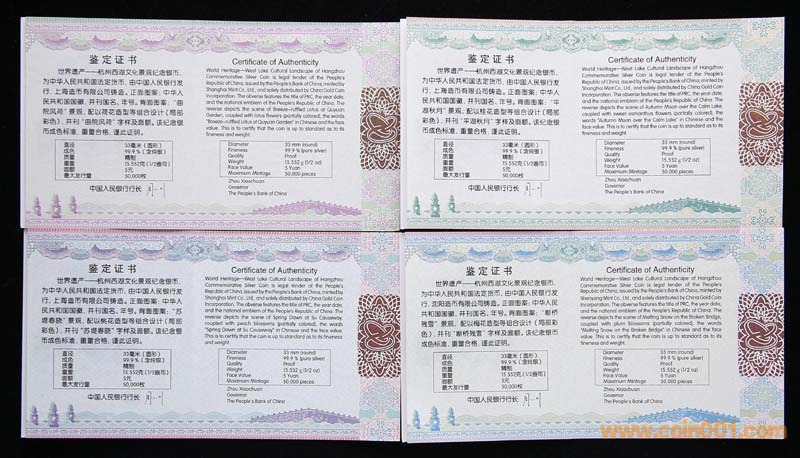 鉴定证书
世界遗产——杭州西湖文化景观纪念银币,
为中华人民共和国法定货币, 由中国人民银行发
行, 上海造币有限公司铸造。正面图案: 中华人
民共和国国徽, 并刊国名、年号。背面图案: “曲
院风荷”景观, 配以荷花造型等组合设计（局部
彩色）, 并刊“曲院风荷”字样及面额。该纪念银
币成色标准, 重量合格, 谨此证明。
直径 33毫米（圆形）
成色 99.9%（含纯银）
质量 精制
重量 15.552克(1/2盎司)
面额 5元
最大发行量 50,000枚
中国人民银行行长
Certificate of Authenticity
World Heritage—West Lake Cultural Landscape of Hangzhou
Commemorative Silver Coin is legal tender of the People's
Republic of China, issued by the People's Bank of China, minted by
Shanghai Mint Co., Ltd., and solely distributed by China Gold Coin
Incorporation. The obverse features the title of PRC, the year date,
and the national emblem of the People's Republic of China. The
reverse depicts the scene of Breeze-ruffled Lotus at Quyuan
Garden, coupled with lotus flowers (partially colored), the words
"Breeze-ruffled Lotus at Quyuan Garden" in Chinese and the face
value. This is to certify that the coin is up to standard as to its
fineness and weight.
Diameter 33 mm (round)
Fineness 99.9 % (pure silver)
Quality Proof
Weight 15.552 g (1/2 oz)
Face Value 5 Yuan
Maximum Mintage 50,000 pieces
Zhou Xiaochuan
Governor
The People's Bank of China
鉴定证书
世界遗产——杭州西湖文化景观纪念银币,
为中华人民共和国法定货币, 由中国人民银行发
行, 上海造币有限公司铸造。正面图案: 中华人
民共和国国徽, 并刊国名、年号。背面图案: “平
湖秋月”景观, 配以桂花造型等组合设计（局部
彩色）, 并刊“平湖秋月”字样及面额。该纪念银
币成色标准, 重量合格, 谨此证明。
直径 33毫米（圆形）
成色 99.9%（含纯银）
质量 精制
重量 15.552克(1/2盎司)
面额 5元
最大发行量 50,000枚
中国人民银行行长
Certificate of Authenticity
World Heritage—West Lake Cultural Landscape of Hangzhou
Commemorative Silver Coin is legal tender of the People's
Republic of China, issued by the People's Bank of China, minted by
Shanghai Mint Co., Ltd., and solely distributed by China Gold Coin
Incorporation. The obverse features the title of PRC, the year date,
and the national emblem of the People's Republic of China. The
reverse depicts the scene of Autumn Moon over the Calm Lake,
coupled with sweet osmanthus flowers (partially colored), the
words "Autumn Moon over the Calm Lake" in Chinese and the
face value. This is to certify that the coin is up to standard as to its
fineness and weight.
Diameter 33 mm (round)
Fineness 99.9 % (pure silver)
Quality Proof
Weight 15.552 g (1/2 oz)
Face Value 5 Yuan
Maximum Mintage 50,000 pieces
Zhou Xiaochuan
Governor
The People's Bank of China
鉴定证书
世界遗产——杭州西湖文化景观纪念银币,
为中华人民共和国法定货币, 由中国人民银行发
行, 上海造币有限公司铸造。正面图案: 中华人
民共和国国徽, 并刊国名、年号。背面图案: “苏
堤春晓”景观, 配以桃花造型等组合设计（局部
彩色）, 并刊“苏堤春晓”字样及面额。该纪念银
币成色标准, 重量合格, 谨此证明。
直径 33毫米（圆形）
成色 99.9%（含纯银）
质量 精制
重量 15.552克(1/2盎司)
面额 5元
最大发行量 50,000枚
中国人民银行行长
Certificate of Authenticity
World Heritage—West Lake Cultural Landscape of Hangzhou
Commemorative Silver Coin is legal tender of the People's
Republic of China, issued by the People's Bank of China, minted by
Shanghai Mint Co., Ltd., and solely distributed by China Gold Coin
Incorporation. The obverse features the title of PRC, the year date,
and the national emblem of the People's Republic of China. The
reverse depicts the scene of Spring Dawn at Su Causeway,
coupled with peach blossoms (partially colored), the words
"Spring Dawn at Su Causeway" in Chinese and the face value.
This is to certify that the coin is up to standard as to its fineness
and weight.
Diameter 33 mm (round)
Fineness 99.9 % (pure silver)
Quality Proof
Weight 15.552 g (1/2 oz)
Face Value 5 Yuan
Maximum Mintage 50,000 pieces
Zhou Xiaochuan
Governor
The People's Bank of China
鉴定证书
世界遗产——杭州西湖文化景观纪念银币,
为中华人民共和国法定货币, 由中国人民银行发
行, 沈阳造币有限公司铸造。正面图案: 中华人
民共和国国徽, 并刊国名、年号。背面图案: “断桥
残雪”景观, 配以梅花造型等组合设计（局部彩
色）, 并刊“断桥残雪”字样及面额。该纪念银币
成色标准, 重量合格, 谨此证明。
直径 33毫米（圆形）
成色 99.9%（含纯银）
质量 精制
重量 15.552克(1/2盎司)
面额 5元
最大发行量 50,000枚
中国人民银行行长
Certificate of Authenticity
World Heritage—West Lake Cultural Landscape of Hangzhou
Commemorative Silver Coin is legal tender of the People's
Republic of China, issued by the People's Bank of China, minted by
Shenyang Mint Co., Ltd., and solely distributed by China Gold Coin
Incorporation. The obverse features the title of PRC, the year date,
and the national emblem of the People's Republic of China. The
reverse depicts the scene of Melting Snow on the Broken Bridge,
coupled with plum blossoms (partially colored), the words
"Melting Snow on the Broken Bridge" in Chinese and the face
value. This is to certify that the coin is up to standard as to its
fineness and weight.
Diameter 33 mm (round)
Fineness 99.9 % (pure silver)
Quality Proof
Weight 15.552 g (1/2 oz)
Face Value 5 Yuan
Maximum Mintage 50,000 pieces
Zhou Xiaochuan
Governor
The People's Bank of China
www.coin001.com